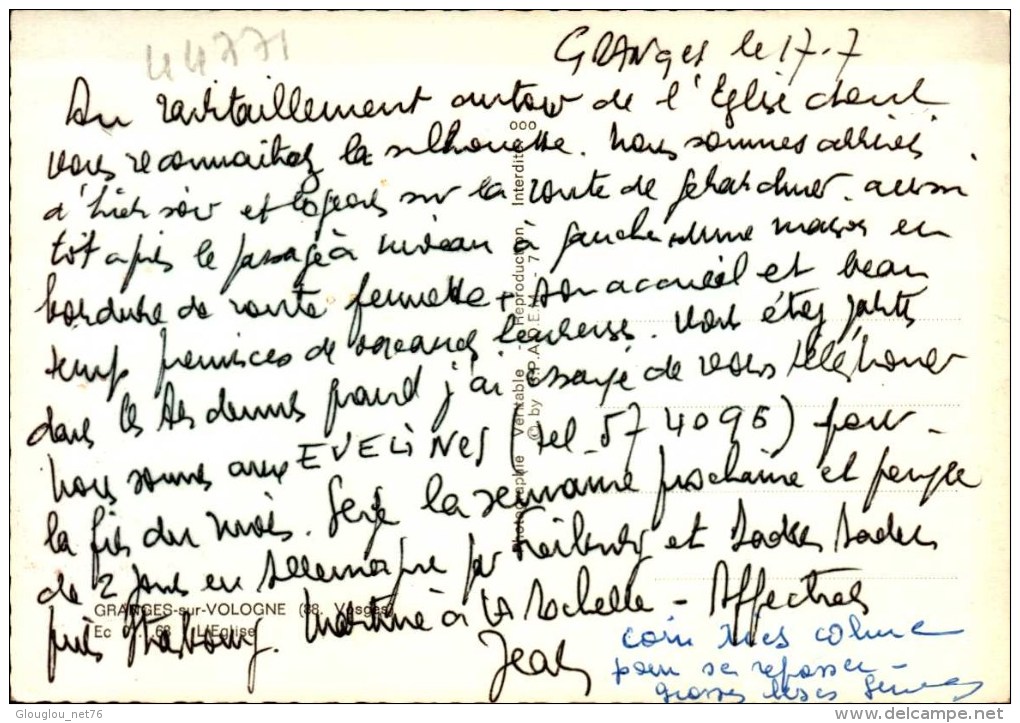 44771
GRANges le 17-7
Au ravitaillement autour de l'Eglise dont
vous reconnaitrez la silhouette. Nous sommes arrivés
d'hier soir et logeons sur la route de Gerardmer. aussi
tôt après le passage à niveau à gauche dans une maison en
bordure de route fermette + bon accueil et beau
temps premices de vacances heureuses. Vous étiez partis
dans les quand j'ai essayé de vous téléphoner
Nous sommes aux EVELINES (tel 57 40 95) pour
la fin du mois. Serge la semaine prochaine et
de 2 jours en Allemagne par Freiburg et Baden Baden
puis Strasbourg. Martine à LA Rochelle - Affections
Jean
coin très calme
pour se reposer -
grosses bises
Photographie Véritable - Reproduction Interdite 000
© by S.P.A.D.E.M.
GRANGES-sur-VOLOGNE (88. Vosges)
L'Eglise
Glouglou_net76